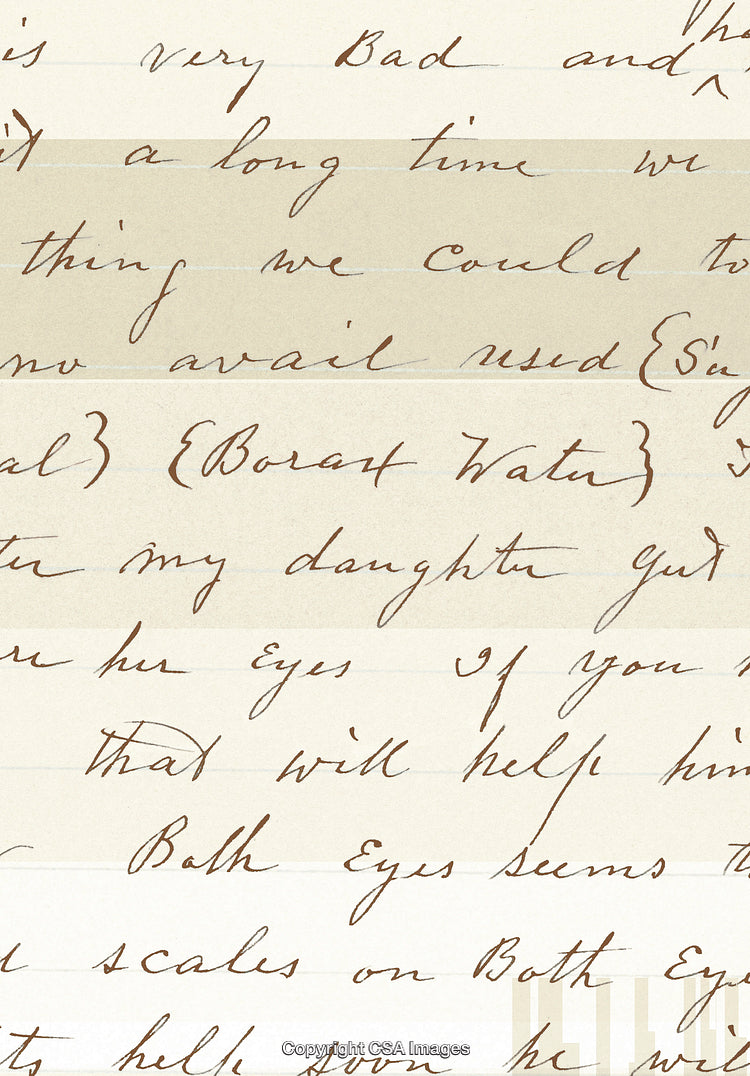 is very Bad and ^ ha
it a long time we
thing we could to
no avail used {Su
al} {Borax Water}
ter my daughter gut
her Eyes If you
that will help him
Both Eyes seems th
scales on Both Eye
ts help soon he will
Copyright CSA Images